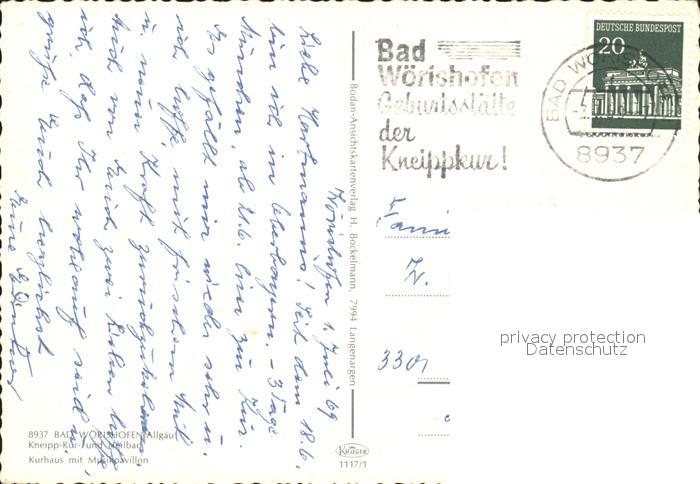 Wörishofen 1. Juli 69
Liebe Hartmanns! Seit dem 18.6.
bin ich im Oberbayern. – 3 Tage
München, ab 21.6. hier zur Kur.
Es gefällt mir wieder sehr u.
ich hoffe, mit frischem Mut
u. neuer Kraft zurückzukehren.
Auch von Euch zwei Lieben hoffe
ich, daß Ihr wohlauf seid u.
grüße Euch herzlichst
Eure
8937 BAD WÖRISHOFEN/Allgäu
Kneipp-Kur- und Heilbad
Kurhaus mit Musikpavillon
Bodan-Ansichtskartenverlag H. Bockelmann, 7994 Langenargen
KRÜGER
1117/1
Bad
Wörishofen
Geburtsstätte
der
Kneippkur!
DEUTSCHE BUNDESPOST
20
BAD WÖRISHOFEN
8937
Fami
330
privacy protection
Datenschutz